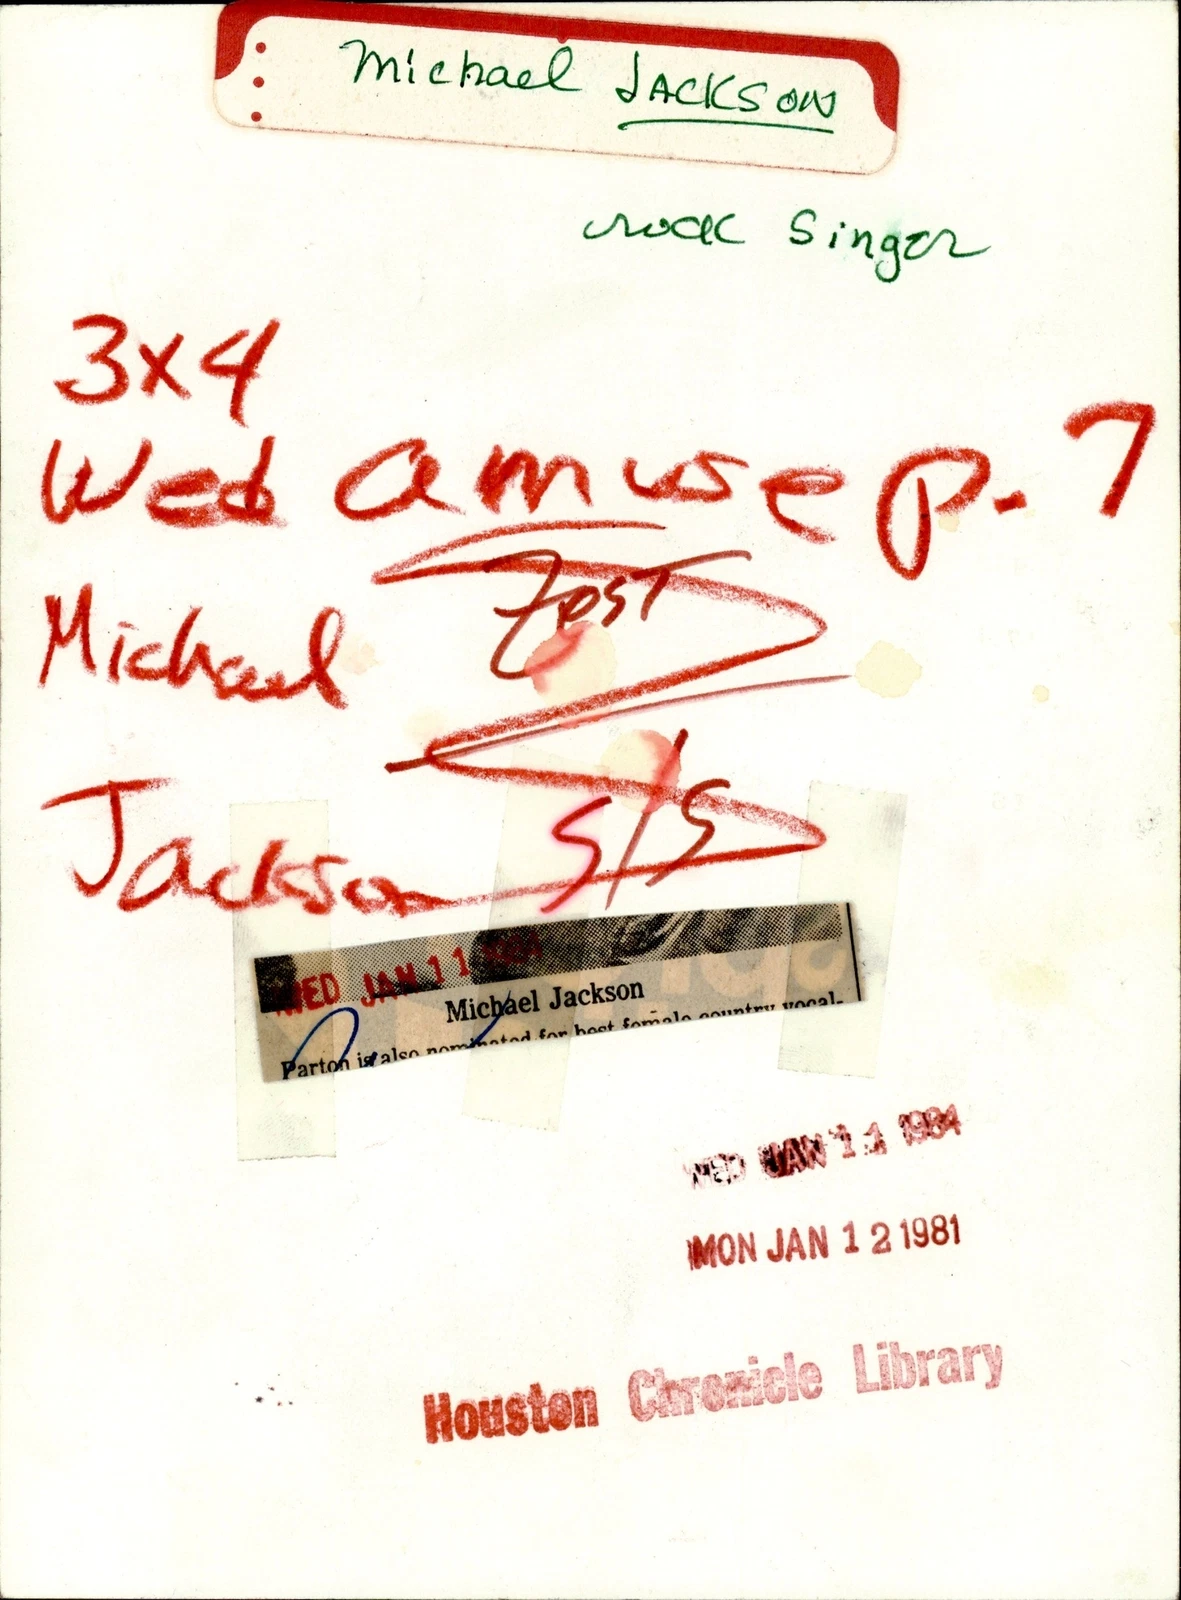 Michael JACKSON
rock singer
3x4
Wed amuse p. 7
Michael
Jackson
S/S
WED JAN 11 1984
Michael Jackson
Parton is also nominated for best female country vocal-
WED JAN 11 1984
MON JAN 12 1981
Houston Chronicle Library